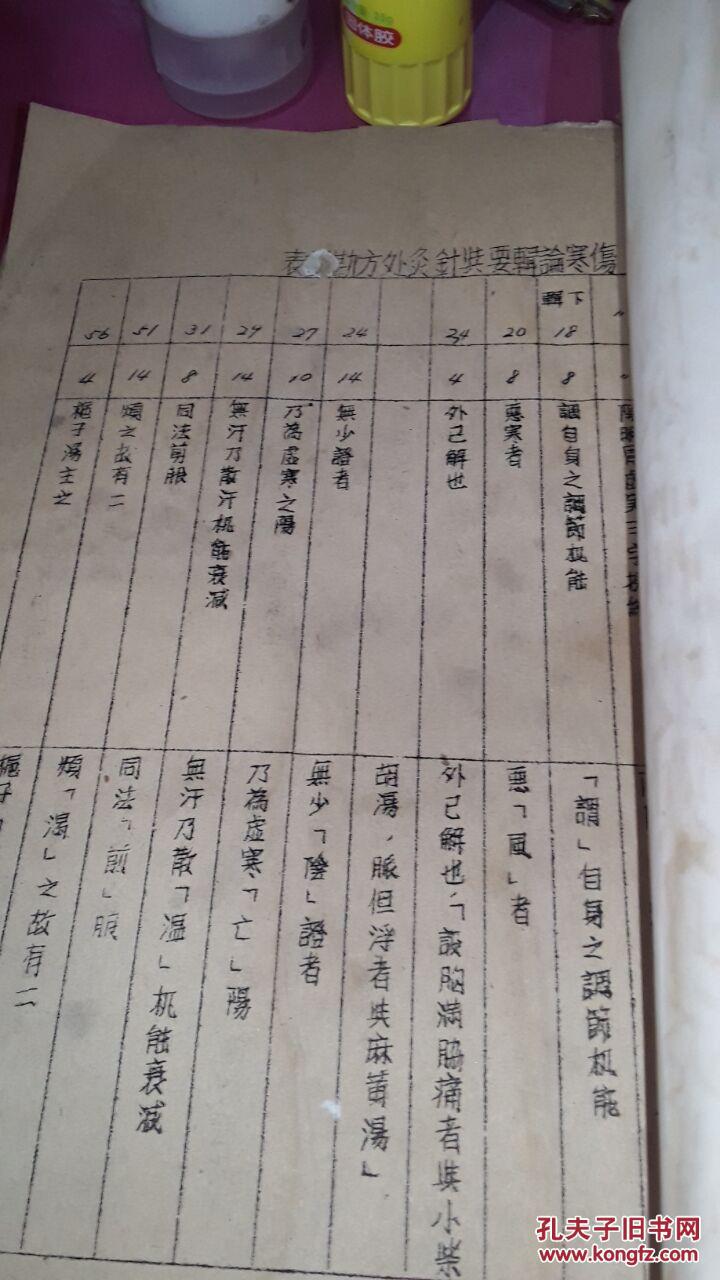 傷寒論輯要與針灸外方勘
表
下輯
18
8
調自身之調節机能
「謂」自身之調節机能
20
8
惡寒者
惡「風」者
24
4
外己解也
外己解也.「設胸滿脇痛者與小柴
胡湯.脈但浮者與麻黄湯」
24
14
無少證者
無少「陰」證者
27
10
乃為虛寒之陽
乃為虛寒「亡」陽
29
14
無汗乃散汗机能衰减
無汗乃散「温」机能衰减
31
8
同法剪服
同法「煎」服
51
14
煩之故有二
煩「渴」之故有二
56
4
梔子湯主之
梔子
固体胶
孔夫子旧书网
www.kongfz.com